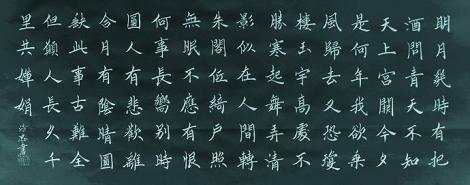 明月幾時有把
酒問青天不知
天上宮闕今夕
是何年我欲乘
風歸去又恐瓊
樓玉宇高處不
勝寒起舞弄清
影似在人間轉
朱閣低綺戶照
無眠不應有恨
何事長嚮別時
圓人有悲歡離
合月有陰晴圓
缺此事古難全
但願人長久千
里共嬋娟